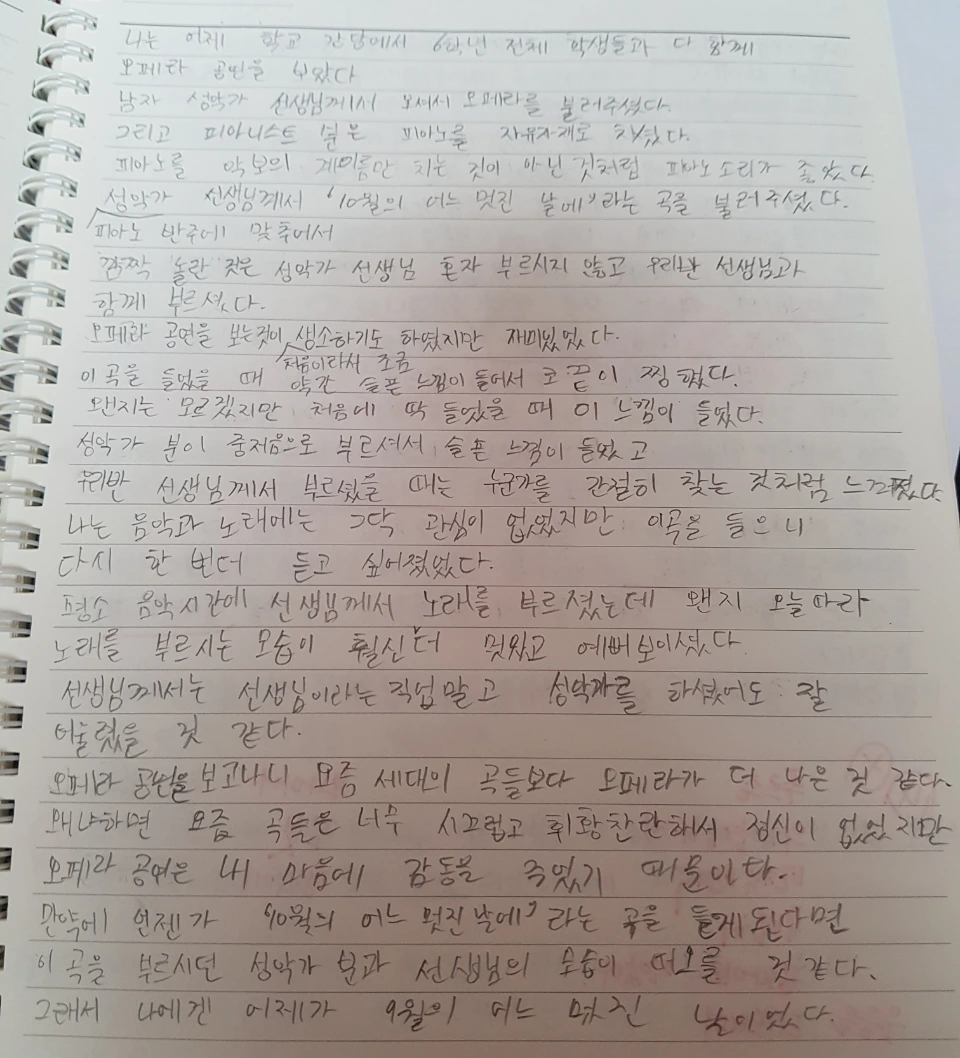 나는 어제 학교 강당에서 6학년 전체 학생들과 다 함께
오페라 공연을 보았다
남자 성악가 선생님께서 오셔서 오페라를 불러주셨다.
그리고 피아니스트 분은 피아노를 자유자재로 치셨다.
피아노를 악보의 계이름만 치는 것이 아닌 것처럼 피아노 소리가 좋았다.
성악가 선생님께서 '10월의 어느 멋진 날에'라는 곡을 불러주셨다.
피아노 반주에 맞추어서
깜짝 놀란 것은 성악가 선생님 혼자 부르시지 않고 우리반 선생님과
함께 부르셨다.
오페라 공연을 보는것이 생소하기도 하였지만 재미있었다.
처음이라서 조금
이 곡을 들었을 때 약간 슬픈 느낌이 들어서 코 끝이 찡했다.
왠지는 모르겠지만 처음에 딱 들었을 때 이 느낌이 들었다.
성악가 분이 중저음으로 부르셔서 슬픈 느낌이 들었고
우리반 선생님께서 부르셨을 때는 누군가를 간절히 찾는 것처럼 느껴졌다
나는 음악과 노래에는 그닥 관심이 없었지만 이곡을 들으니
다시 한 번더 듣고 싶어졌었다.
평소 음악시간에 선생님께서 노래를 부르셨는데 왠지 오늘따라
노래를 부르시는 모습이 훨신 더 멋있고 예뻐보이셨다.
선생님께서는 선생님이라는 직업말고 성악가를 하셨어도 잘
어울렸을 것 같다.
오페라 공연을 보고나니 요즘 세대의 곡들보다 오페라가 더 나은 것 같다.
왜냐하면 요즘 곡들은 너무 시끄럽고 휘황찬란해서 정신이 없었지만
오페라 공연은 내 마음에 감동을 주었기 때문이다.
만약에 언젠가 '10월의 어느 멋진날에'라는 곡을 듣게된다면
이 곡을 부르시던 성악가 분과 선생님의 모습이 떠오를 것 같다.
그래서 나에겐 어제가 9월의 어느 멋진 날이었다.